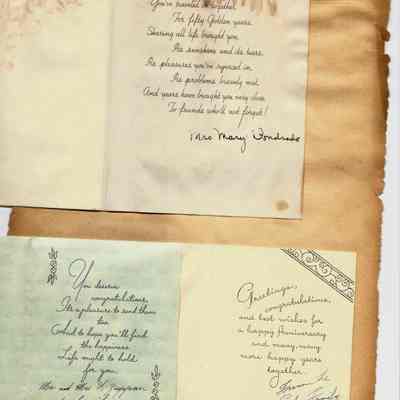 You've traveled on together
For fifty Golden years
Sharing all life brought you
Its sunshine and its tears.
Its pleasures you've rejoiced in,
Its problems bravely met,
And years have brought you many dear
To friends who'll not forget!
Mrs Mary
You deserve
congratulations,
It's a pleasure to send them
too
And to hope you'll find
the happiness
Life ought to hold
for you.
Mr. and Mrs.
Greetings,
congratulations,
and best wishes for
a happy Anniversary
and many, many
more happy years
together.
From the